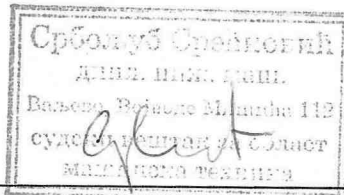 Србољуб Срећковић
дипл. инж. маш.
Ваљево, 112
судски вештак за област
машинска техника